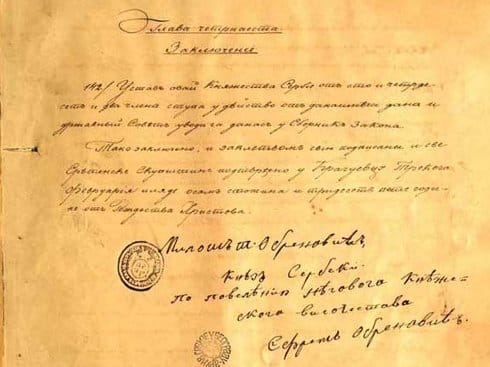 Глава четрнаеста
Заключенiе
142/ Уставъ овай Княжества Сербiе отъ сто и четрде-
сетъ и два члена ступа у дѣйство отъ данашнѣгъ дана и
државный Совѣтъ уводи га данасъ у Сборникъ Закона.
Тако заключено, и заклетвомъ свiю подписаны и све
Србске Скупштине подтврђено у Крагуевцу Трећега
Февруарiя иляде осамъ стотина и тридесетъ пете годи-
не отъ Рождества Христова.
Милошъ т. Обреновићъ,
Князъ Сербскiй.
По повеленiю Нѣговога Кнѣже-
скога височества
Ефремъ Обреновићъ.